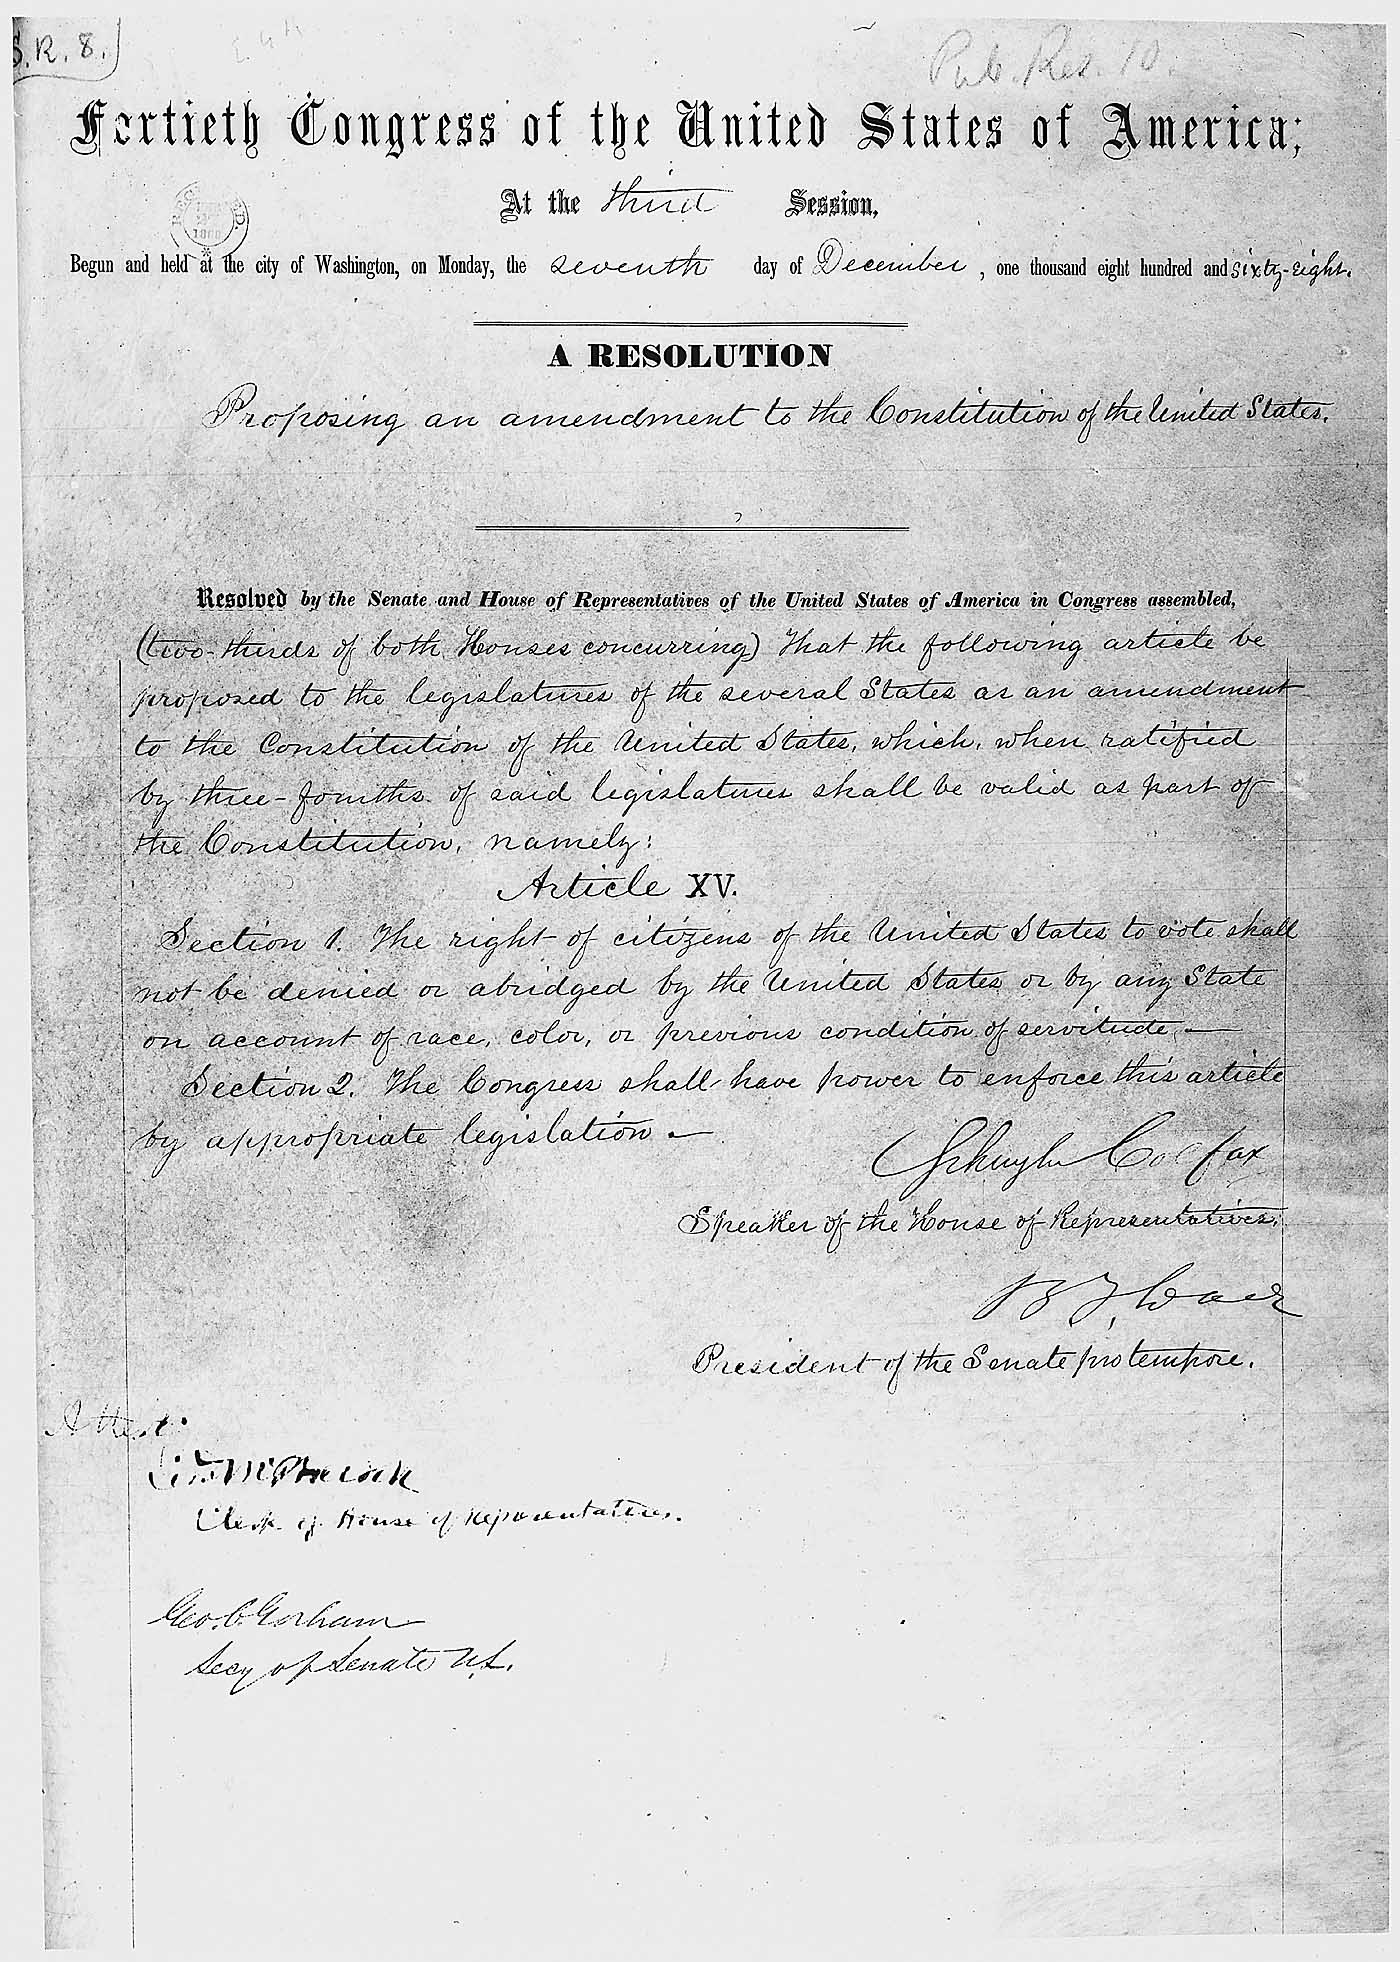 S.R. 8.
Pub. Res. 10.
Fortieth Congress of the United States of America;
At the third Session,
Begun and held at the city of Washington, on Monday, the seventh day of December, one thousand eight hundred and sixty-eight.
A RESOLUTION
Proposing an amendment to the Constitution of the United States.
Resolved by the Senate and House of Representatives of the United States of America in Congress assembled,
(two-thirds of both Houses concurring) That the following article be
proposed to the legislatures of the several States as an amendment
to the Constitution of the United States, which, when ratified
by three-fourths of said legislatures shall be valid as part of
the Constitution, namely:
Article XV.
Section 1. The right of citizens of the United States to vote shall
not be denied or abridged by the United States or by any State
on account of race, color, or previous condition of servitude.—
Section 2. The Congress shall have power to enforce this article
by appropriate legislation.—
Schuyler Colfax
Speaker of the House of Representatives.
B. F. Wade
President of the Senate pro tempore.
Attest:
McPherson
Clerk of House of Representatives.
Geo. C. Gorham
Secy of Senate U.S.